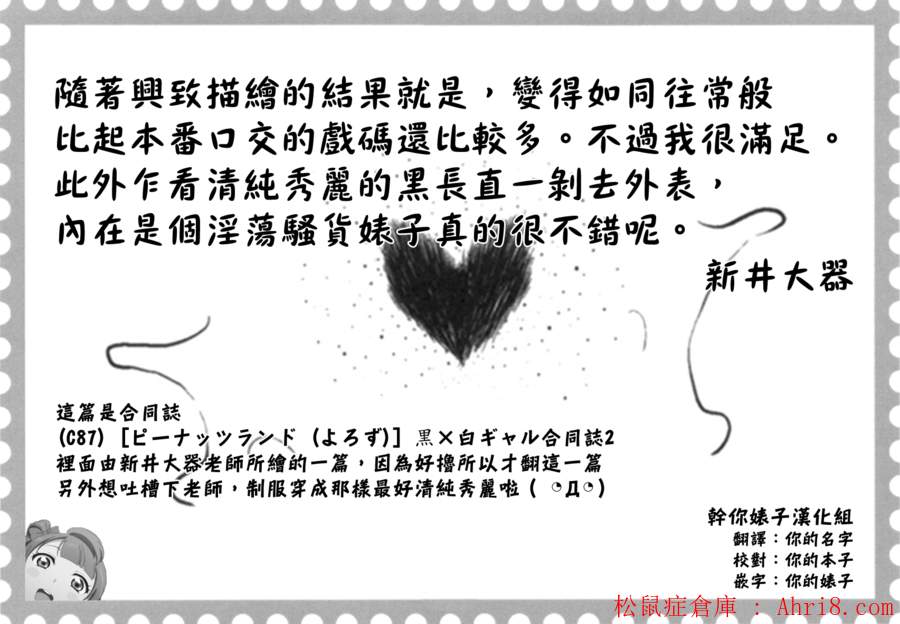 隨著興致描繪的結果就是，變得如同往常般
比起本番口交的戲碼還比較多。不過我很滿足。
此外乍看清純秀麗的黑長直一剝去外表，
內在是個淫蕩騷貨婊子真的很不錯呢。
新井大器
這篇是合同誌
(C87) [ピーナッツランド (よろず)] 黒×白ギャル合同誌2
裡面由新井大器老師所繪的一篇，因為好擼所以才翻這一篇
另外想吐槽下老師，制服穿成那樣最好清純秀麗啦( ◔Д◔)
幹你婊子漢化組
翻譯：你的名字
校對：你的本子
嵌字：你的婊子
松鼠症倉庫 : Ahri8.com